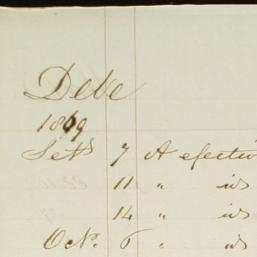 Debe
1869
Setb 7 A efectiv
11 " id
14 " id
Oct. 6 " id